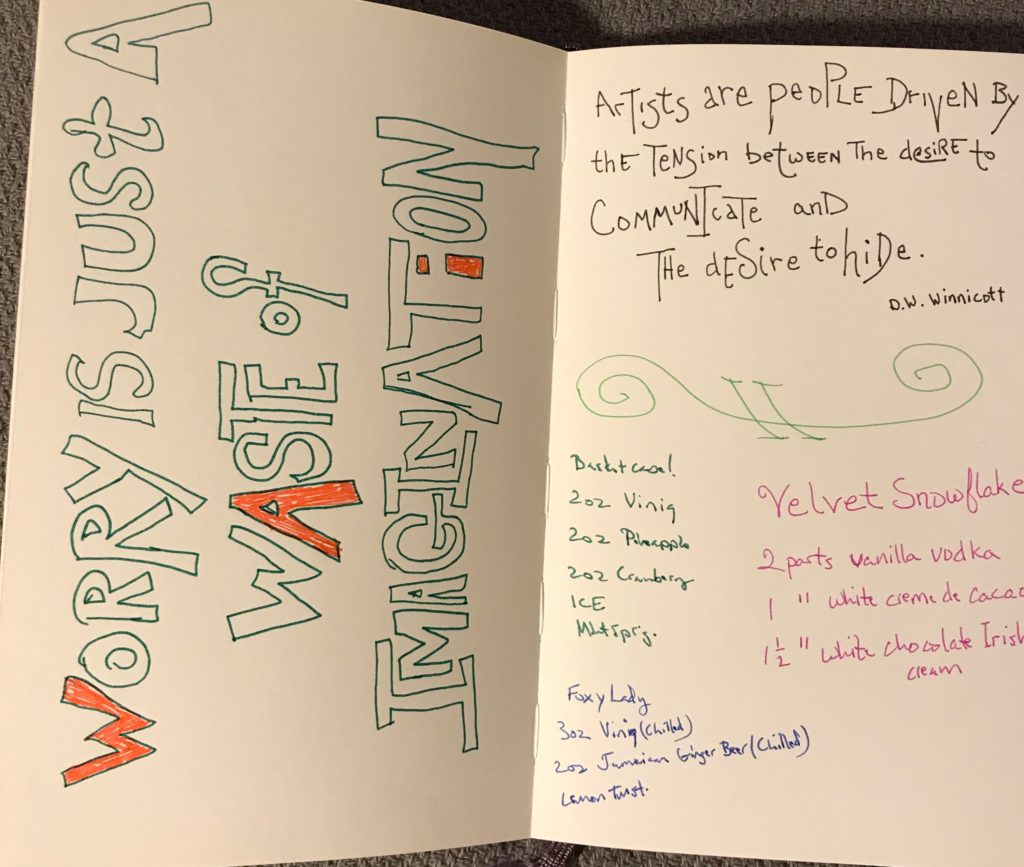 WORRY IS JUST A
WASTE of
IMAGINATION
ARTists are peoPLE DRIVEN By
thE TENsion betWEEN The desiRE to
COMMUNIcaTe anD
THe dESire to hiDe.
D.W. Winnicott
Basket case!
2oz Viniq
2oz Pineapple
2oz Cranberry
ICE
Mint Sprig.
Velvet Snowflake
2 parts vanilla vodka
1 " white creme de cacao
1 1/2 " white chocolate Irish
cream
Foxy Lady
3oz Viniq (Chilled)
2oz Jamaican Ginger Beer (Chilled)
Lemon twist.